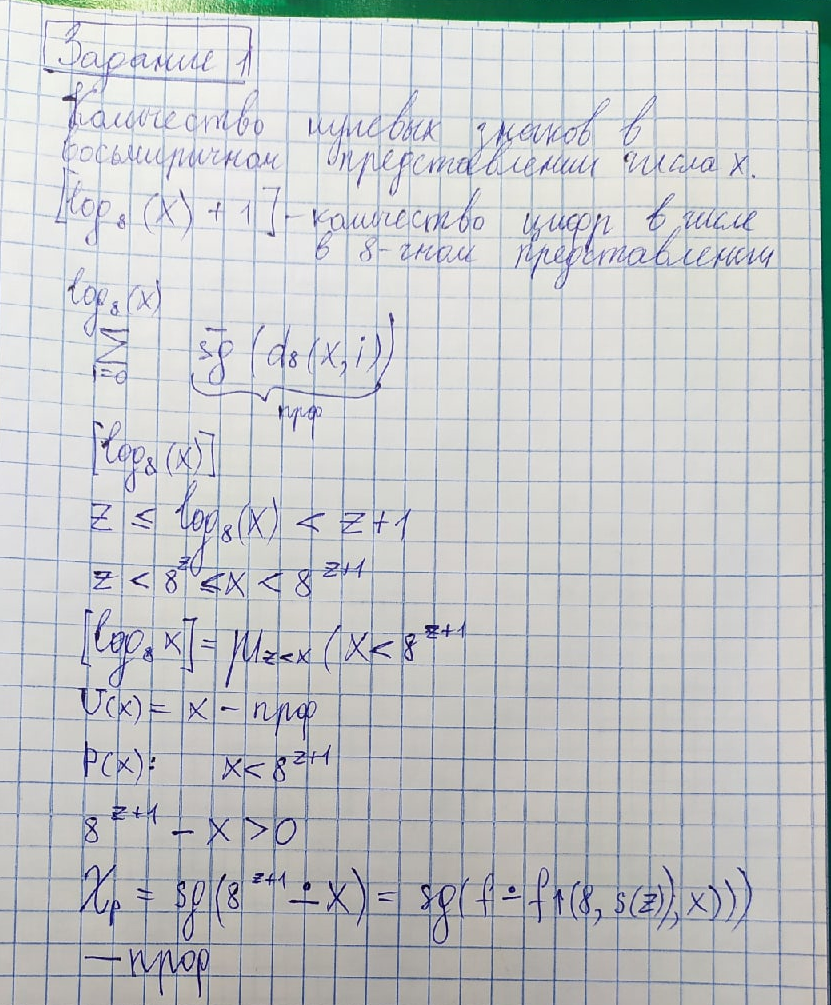 Задание 1
Количество нулевых знаков в
восьмиричном представлении числа x.
[log₈(x) + 1] - количество цифр в числе
в 8-чном представлении
log₈(x)
Σ s̅g̅ (d₈(x, i))
i=0
прф
[log₈(x)]
z ≤ log₈(x) < z+1
z < 8^z ≤ x < 8^{z+1}
[log₈ x] = μ_{z<x} (x < 8^{z+1}
U(x) = x - прф
P(x): x < 8^{z+1}
8^{z+1} - x > 0
χ_p = sg(8^{z+1} ∸ x) = sg(f∸ f↑(8, s(z)), x)))
— прф